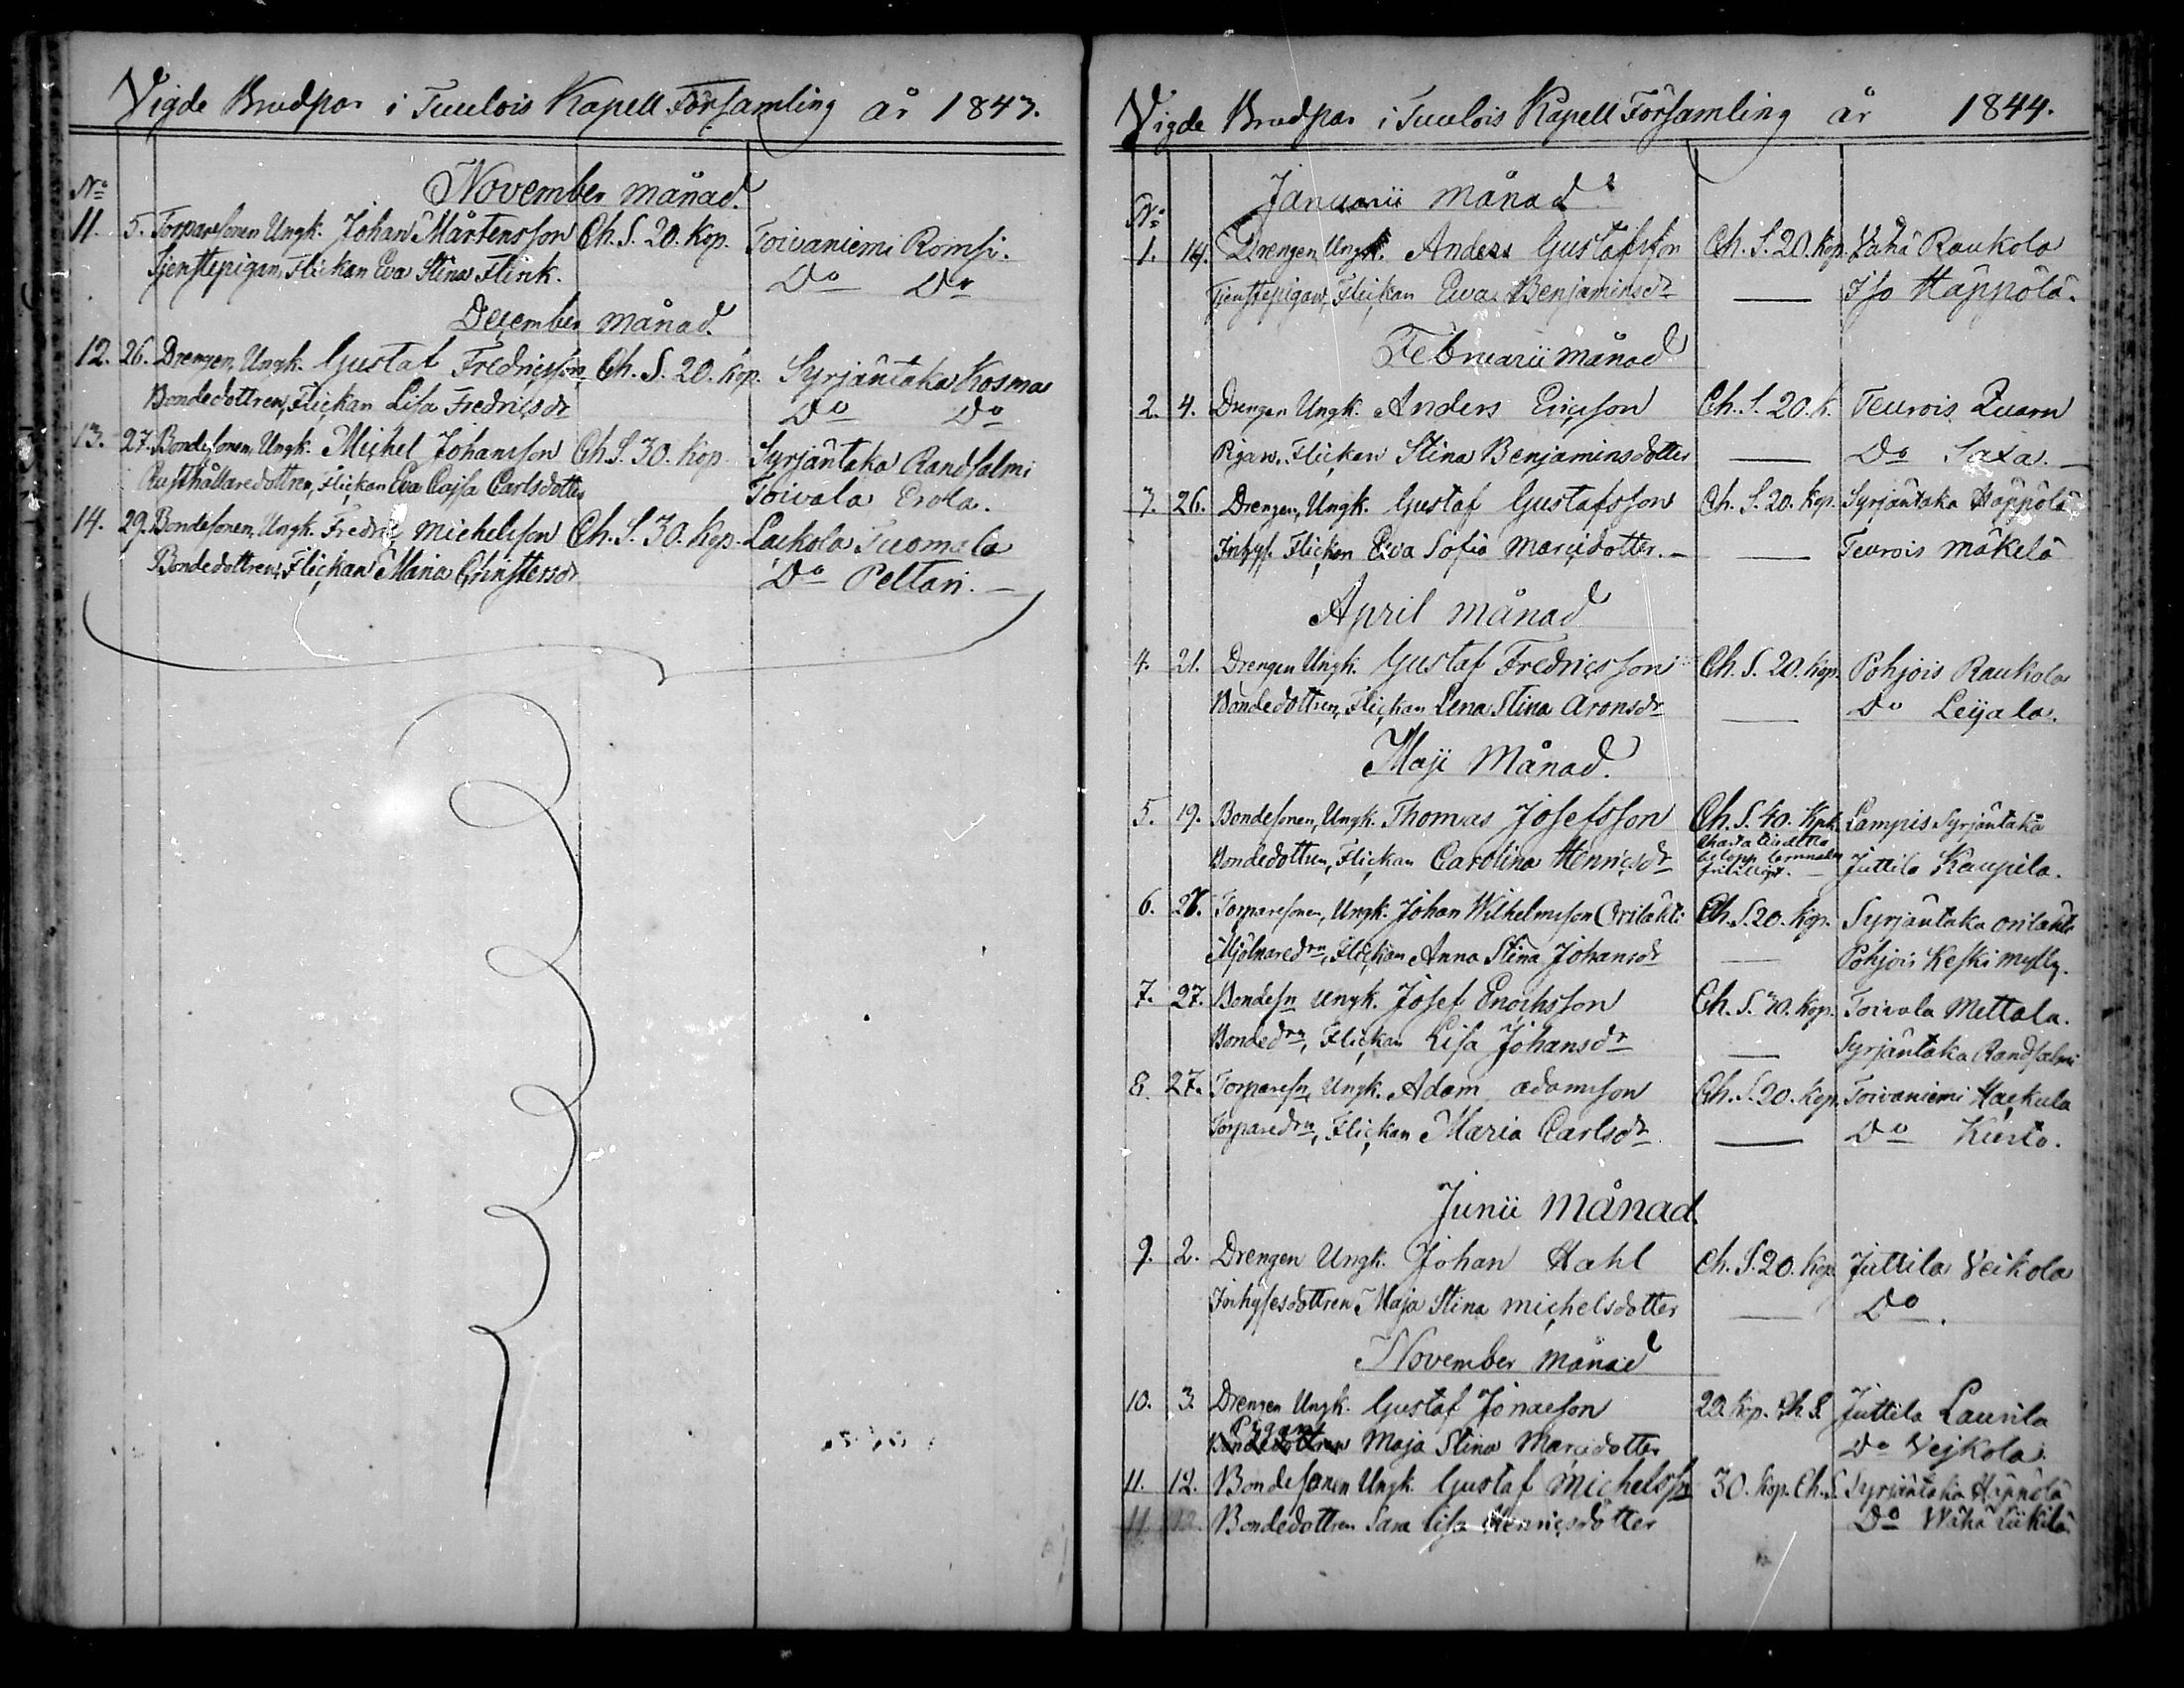 Vigde Brudpar i Tuulois Kapell Församling år 1843.
November månad.
No
11. 5. Torparesonen Ungk. Johan Mårtensson Ch. S. 20. Kop. Toivaniemi Romsi.
Tjenstepigan, Flickan Eva Stina Flink. Do Do
December månad.
12. 26. Drengen, Ungk. Gustaf Fredricsson Ch. S. 20. Kop. Syrjäntaka Kosma
Bondedottren, Flickan Lisa Fredricsdr Do Do
13. 27. Bondesonen, Ungk. Michel Johansson Ch. S. 30. Kop. Syrjäntaka Randsalmi
Rusthållaredottren, Flickan Eva Cajsa Carlsdotter Toivala Erola.
14. 29. Bondesonen, Ungk. Fredric Michelsson Ch. S. 30. Kop. Laikola Tuomela
Bondedottren, Flickan Maria Christersdr Do Peltari.
Vigde Brudpar i Tuulois Kapell Församling år 1844.
Januarii månad
No
1. 14. Drengen, Ungk. Anders Gustafsson Ch. S. 20. Kop. Vähä Raukola
Tjenstepigan, Flickan Eva Benjaminsdr — Iso Häppölä.
Februarii månad
2. 4. Drengen Ungk. Anders Ericsson Ch. S. 20. K. Teurois Quarn
Pigan, Flickan Stina Benjaminsdotter — Do Saxa.
3. 26. Drengen, Ungk. Gustaf Gustafsson Ch. S. 20. Kop. Syrjäntaka Häppölä
Inhys. Flickan Eva Sofia Marcidotter. — Teurois Mäkelä
April månad
4. 21. Drengen Ungk. Gustaf Fredricsson Ch. S. 20. Kop. Pohjois Raukola
Bondedottren, Flickan Lena Stina Aronsdr — Do Leijala.
Maji Månad.
5. 19. Bondesonen, Ungk. Thomas Josefsson Ch. S. 40. Kop. Lampis Syrjäntaka
Bondedottren, Flickan Carolina Henricsdr Juttila Kaupila.
6. 27. Torparesonen, Ungk. Johan Wilhelmsson Orilähti Ch. S. 20. Kop. Syrjäntaka Orilähti
Mjölnaredrn, Flickan Anna Stina Johansdr — Pohjois Keskimylly.
7. 27. Bondesn Ungk. Josef Enochsson Ch. S. 30. Kop. Toivola Mettala.
Bondedrn, Flickan Lisa Johansdr — Syrjäntaka Randsalmi
8. 27. Torparesn, Ungk. Adam Adamsson Ch. S. 20. Kop. Toivaniemi Hackula
Torparedrn, Flickan Maria Carlsdr — Do Kusto.
Junii månad.
9. 2. Drengen Ungk. Johan Hahl Ch. S. 20. Kop. Juttila Veikola
Inhysesdottren Maja Stina Michelsdotter — Do.
November månad
10. 3. Drengen Ungk. Gustaf Jonaeson 20. Kop. Ch. S. Juttila Laurila
Pigan
Bondedottren Maja Stina Marcidotter Do Vejkola.
11. 12. Bondesonen Ungk. Gustaf Michelsson 30. Kop. Ch. S. Syrjäntaka Häppölä
11 12. Bondedottren Sara Lisa Henricsdotter Do Wähä Liikilä